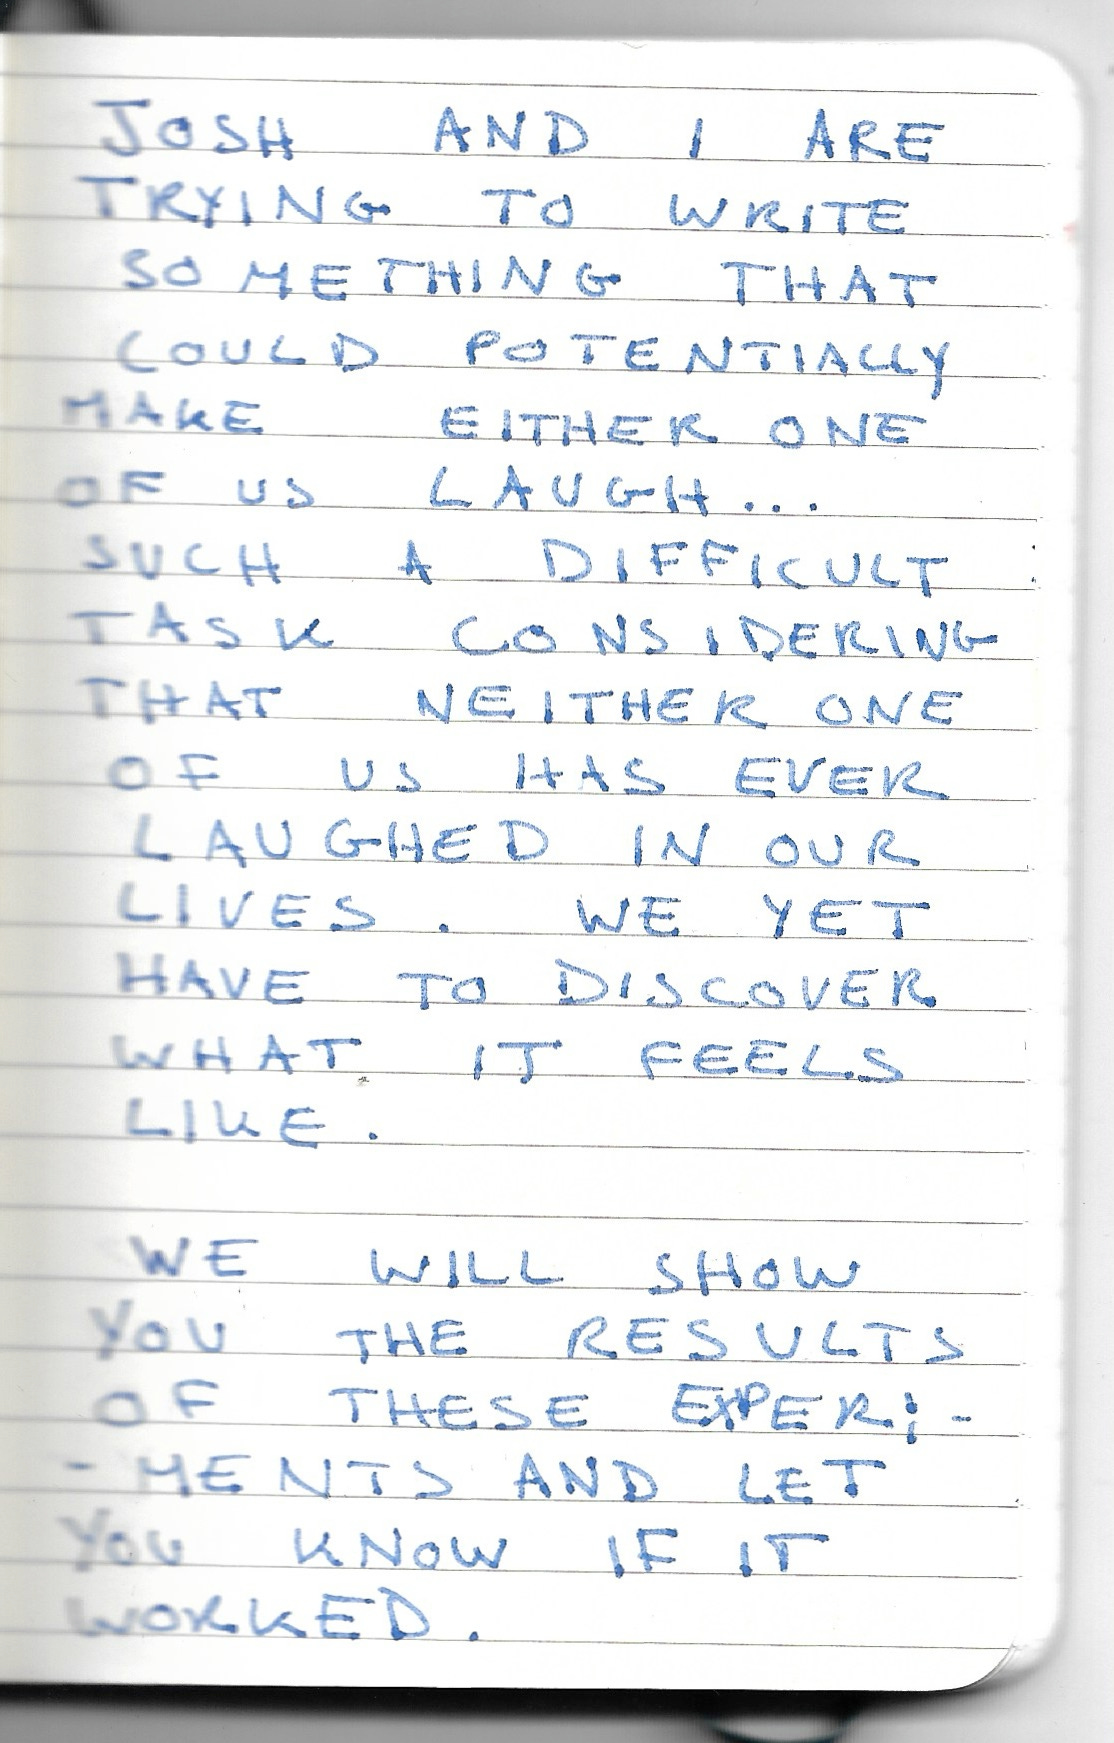 JOSH AND I ARE
TRYING TO WRITE
SOMETHING THAT
COULD POTENTIALLY
MAKE EITHER ONE
OF US LAUGH...
SUCH A DIFFICULT
TASK CONSIDERING
THAT NEITHER ONE
OF US HAS EVER
LAUGHED IN OUR
LIVES. WE YET
HAVE TO DISCOVER
WHAT IT FEELS
LIKE.
WE WILL SHOW
YOU THE RESULTS
OF THESE EXPERI-
-MENTS AND LET
YOU KNOW IF IT
WORKED.